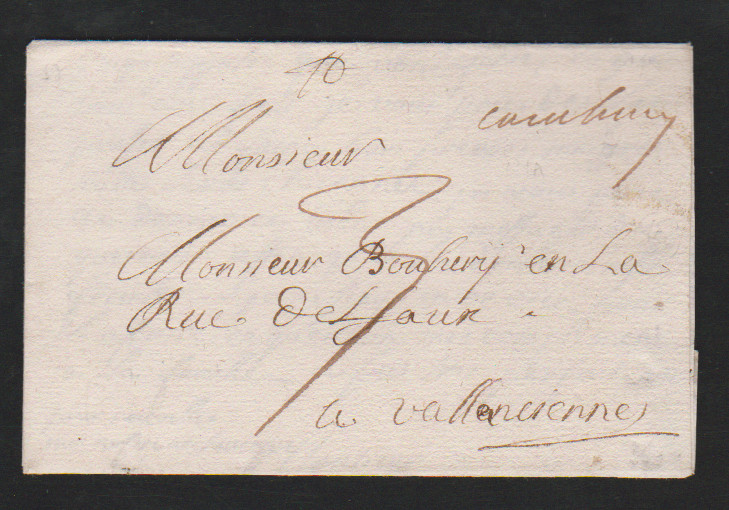 cambray
Monsieur
3
Monsieur Bouhery en La
Rue De
a vallenciennes